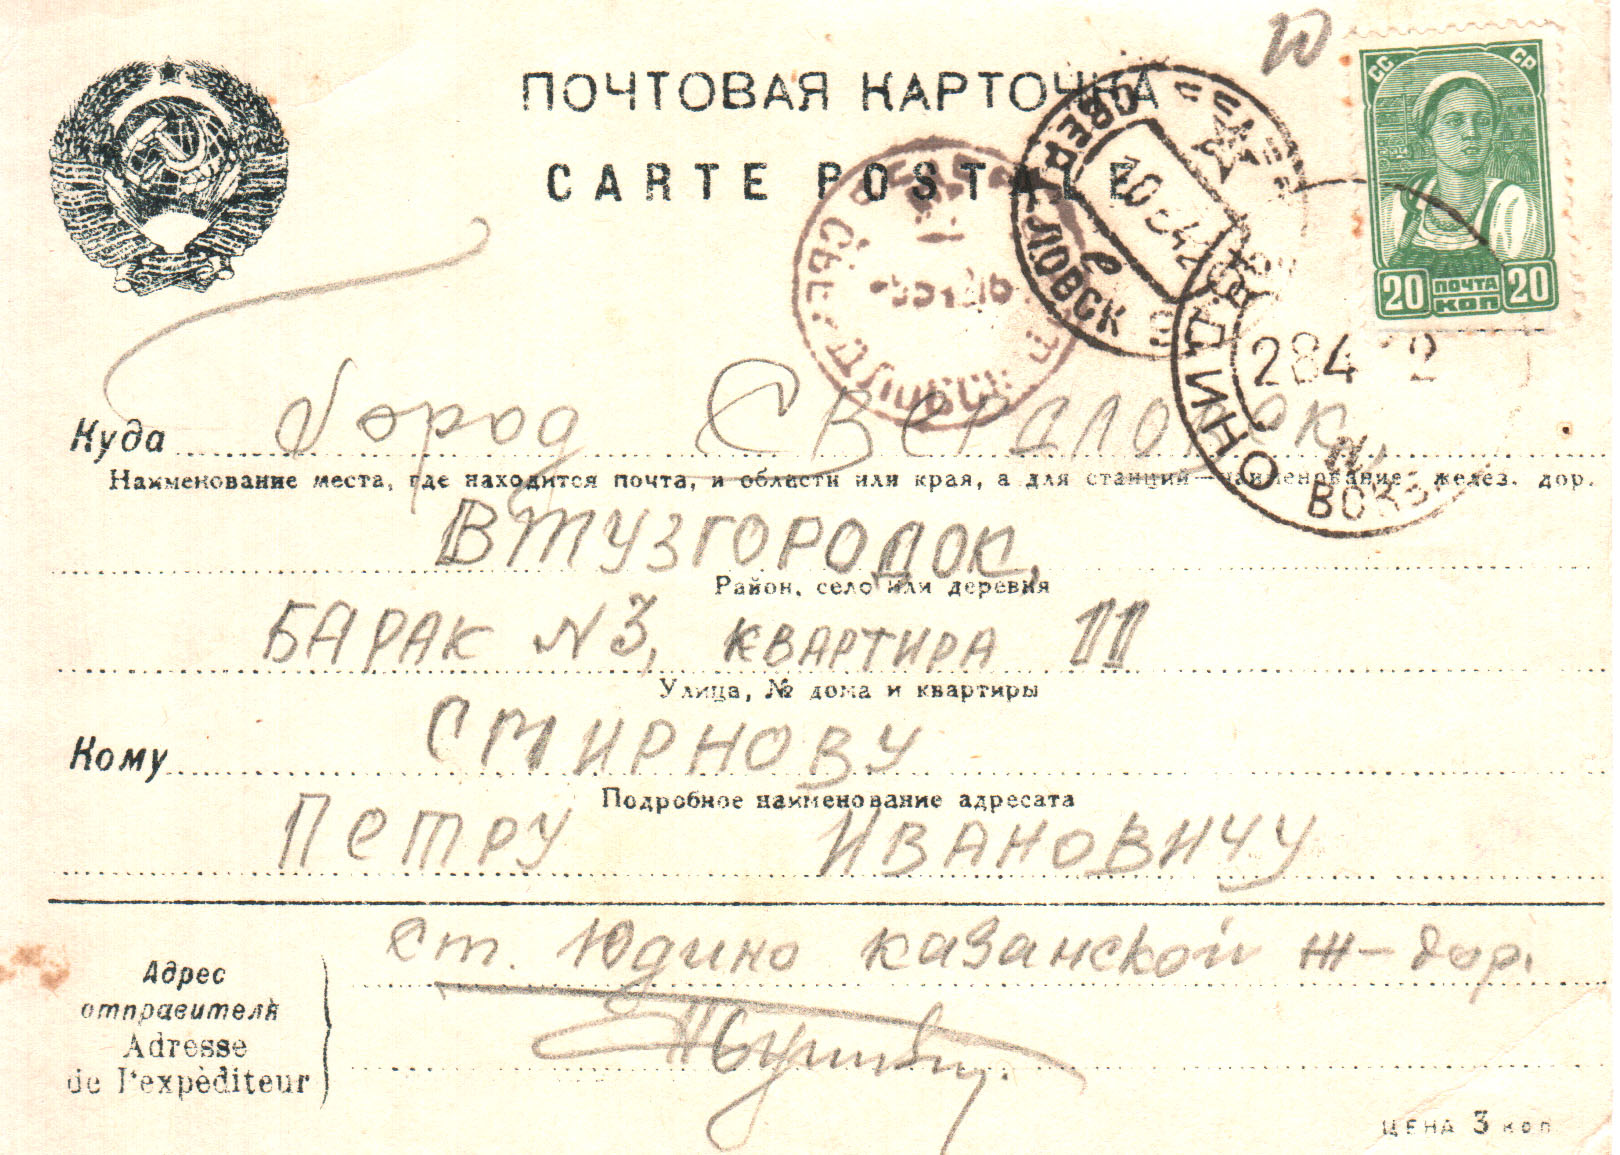 20
ПОЧТОВАЯ КАРТОЧКА
CARTE POSTALE
СС СР
20 ПОЧТА КОП 20
СВЕРДЛОВСК
ЮДИНО
284 2
ВОКЗ
Куда город Свердловск,
Наименование места, где находится почта, и области или края, а для станций—наименование желез. дор.
ВТУЗГОРОДОК,
Район, село или деревня
БАРАК N 3, КВАРТИРА 11
Улица, № дома и квартиры
Кому СМИРНОВУ
Подробное наименование адресата
ПЕТРУ ИВАНОВИЧУ
Адрес отправителя
Adresse de l'expèditeur
ст. Юдино Казанской ж-дор.
ЦЕНА 3 коп